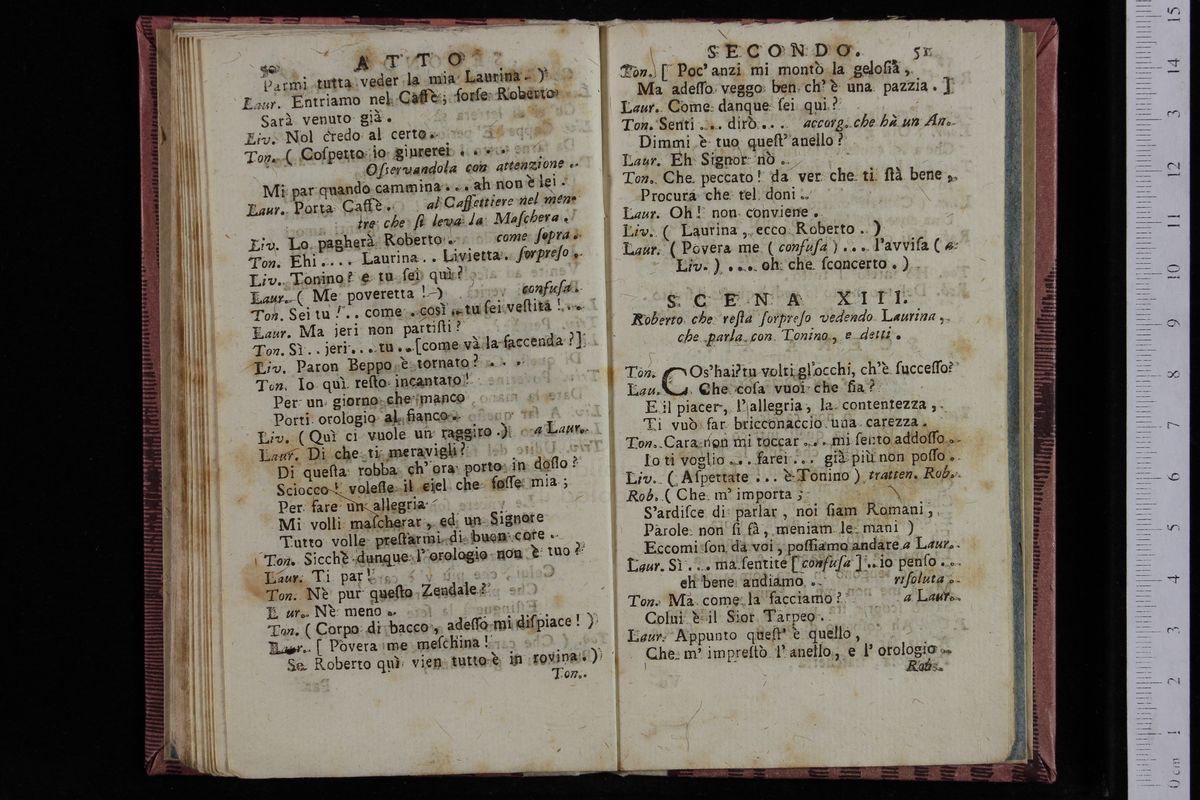 50 ATTO
Parmi tutta veder la mia Laurina. )
Laur. Entriamo nel Caffè; forse Roberto
Sarà venuto già.
Liv. Nol credo al certo.
Ton. ( Cospetto io giurerei . . . .
Oſservandola con attenzione.
Mi par quando cammina... ah non è lei.
Laur. Porta Caffè. al Caffettiere nel men-
tre che ſi leva la Maſchera.
Liv. Lo pagherà Roberto. come ſopra.
Ton. Ehi.... Laurina.. Livietta. ſorpreſo.
Liv. Tonino? e tu ſei quì?
Laur. ( Me poveretta! ) confuſa.
Ton. Sei tu!.. come . così .. tu ſei veſtita!...
Laur. Ma jeri non partiſti?
Ton. Sì.. jeri... tu..[come và la faccenda?]
Liv. Paron Beppo è tornato? . . .
Ton. Io quì reſto incantato!
Per un giorno che manco
Porti orologio al fianco.
Liv. (Quì ci vuole un raggiro.) a Laur.
Laur. Di che ti meravigli?
Di queſta robba ch'ora porto in doſſo?
Sciocco! voleſſe il ciel che foſſe mia;
Per fare un allegria
Mi volli maſcherar, ed un Signore
Tutto volle preſtarmi di buon core.
Ton. Sicchè dunque l'orologio non è tuo?
Laur. Ti par!
Ton. Nè pur queſto Zendale?
L ur. Nè meno.
Ton. (Corpo di bacco, adeſſo mi diſpiace! )
Laur. [ Povera me meſchina!
Se Roberto quì vien tutto è in rovina.)
Ton.
SECONDO. 51
Ton. [ Poc'anzi mi montò la geloſia,
Ma adeſſo veggo ben ch'è una pazzia. ]
Laur. Come danque ſei qui?
Ton. Senti... dirò... accorg. che hà un An.
Dimmi è tuo queſt'anello?
Laur. Eh Signor nò.
Ton. Che peccato! da ver che ti ſtà bene,
Procura che tel doni.
Laur. Oh! non conviene.
Liv. ( Laurina, ecco Roberto. )
Laur. (Povera me (confuſa)... l'avviſa (a
Liv. ) .... oh che ſconcerto.)
SCENA XIII.
Roberto che reſta ſorpreſo vedendo Laurina,
che parla con Tonino, e detti.
Ton. COs'hai? tu volti gl'occhi, ch'è ſucceſſo?
Lau. Che coſa vuoi che ſia?
E il piacer, l'allegria, la contentezza,
Ti vuò far bricconaccio una carezza.
Ton. Cara non mi toccar... mi ſento addoſſo.
Io ti voglio... farei... già più non poſſo.
Liv. ( Aſpettate ... è Tonino ) tratten. Rob.
Rob. ( Che m'importa;
S'ardiſce di parlar, noi ſiam Romani,
Parole non ſi fà, meniam le mani )
Eccomi ſon da voi, poſſiamo andare a Laur.
Laur. Sì... ma ſentite [confuſa]..io penſo..
eh bene andiamo. riſoluta.
Ton. Ma come la facciamo? a Laur.
Colui è il Sior Tarpeo.
Laur. Appunto queſt'è quello,
Che m'impreſtò l'anello, e l'orologio.
Rob.